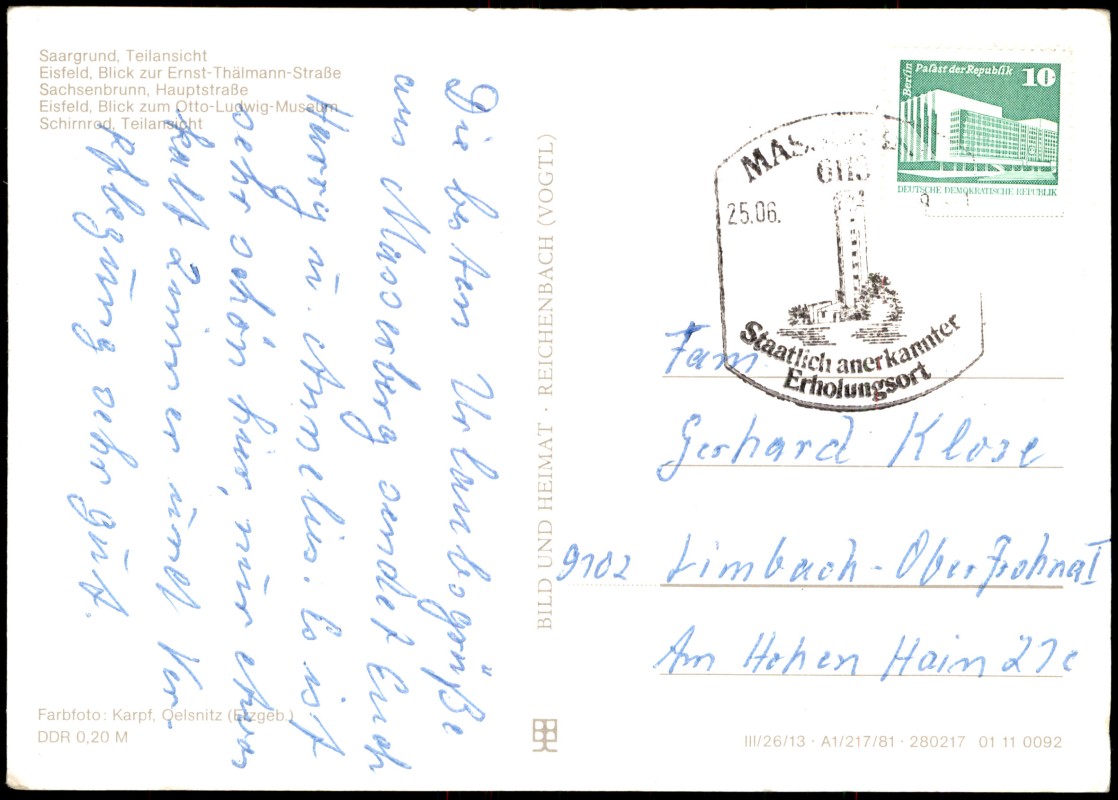 Saargrund, Teilansicht
Eisfeld, Blick zur Ernst-Thälmann-Straße
Sachsenbrunn, Hauptstraße
Eisfeld, Blick zum Otto-Ludwig-Museum
Schirnrod, Teilansicht
Die besten Urlaubsgrüße
aus Masserberg sendet Euch
Harry u. Annelies. Es ist
sehr schön hier, nur etwas
kalt Zimmer und Ver-
pflegung sehr gut.
Farbfoto: Karpf, Oelsnitz (Erzgeb.)
DDR 0,20 M
BILD UND HEIMAT · REICHENBACH (VOGTL)
Berlin
Palast der Republik 10
DEUTSCHE DEMOKRATISCHE REPUBLIK
MAS
6113
25.06.
Staatlich anerkannter
Erholungsort
Fam
Gerhard Klose
9102 Limbach-Oberfrohna I
Am Hohen Hain 27c
III/26/13 · A1/217/81 · 280217 01 11 0092